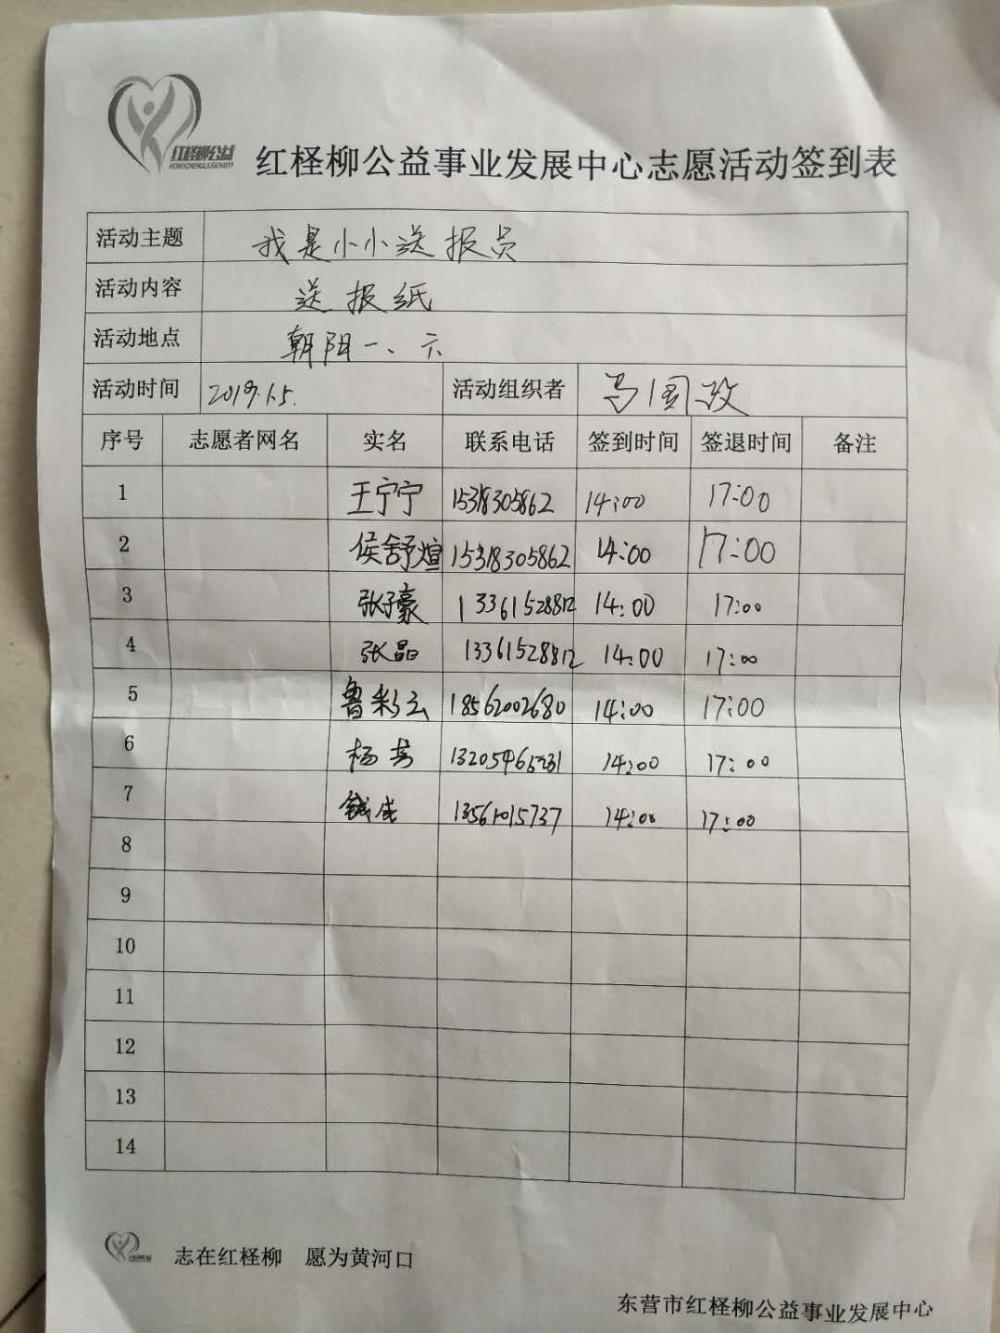 红柽柳公益
HONGCHENGLIUGONGYI
红柽柳公益事业发展中心志愿活动签到表
活动主题 我是小小送报员
活动内容 送报纸
活动地点 朝阳一、六
活动时间 2019.1.5. 活动组织者 马国政
序号 志愿者网名 实名 联系电话 签到时间 签退时间 备注
1 王宁宁 15318305862 14:00 17:00
2 侯舒煊 15318305862 14:00 17:00
3 张子豪 13361528812 14:00 17:00
4 张晶 13361528812 14:00 17:00
5 鲁彩云 18562002680 14:00 17:00
6 杨芳 14:00 17:00
7 13561015737 14:00 17:00
8
9
10
11
12
13
14
志在红柽柳 愿为黄河口
东营市红柽柳公益事业发展中心